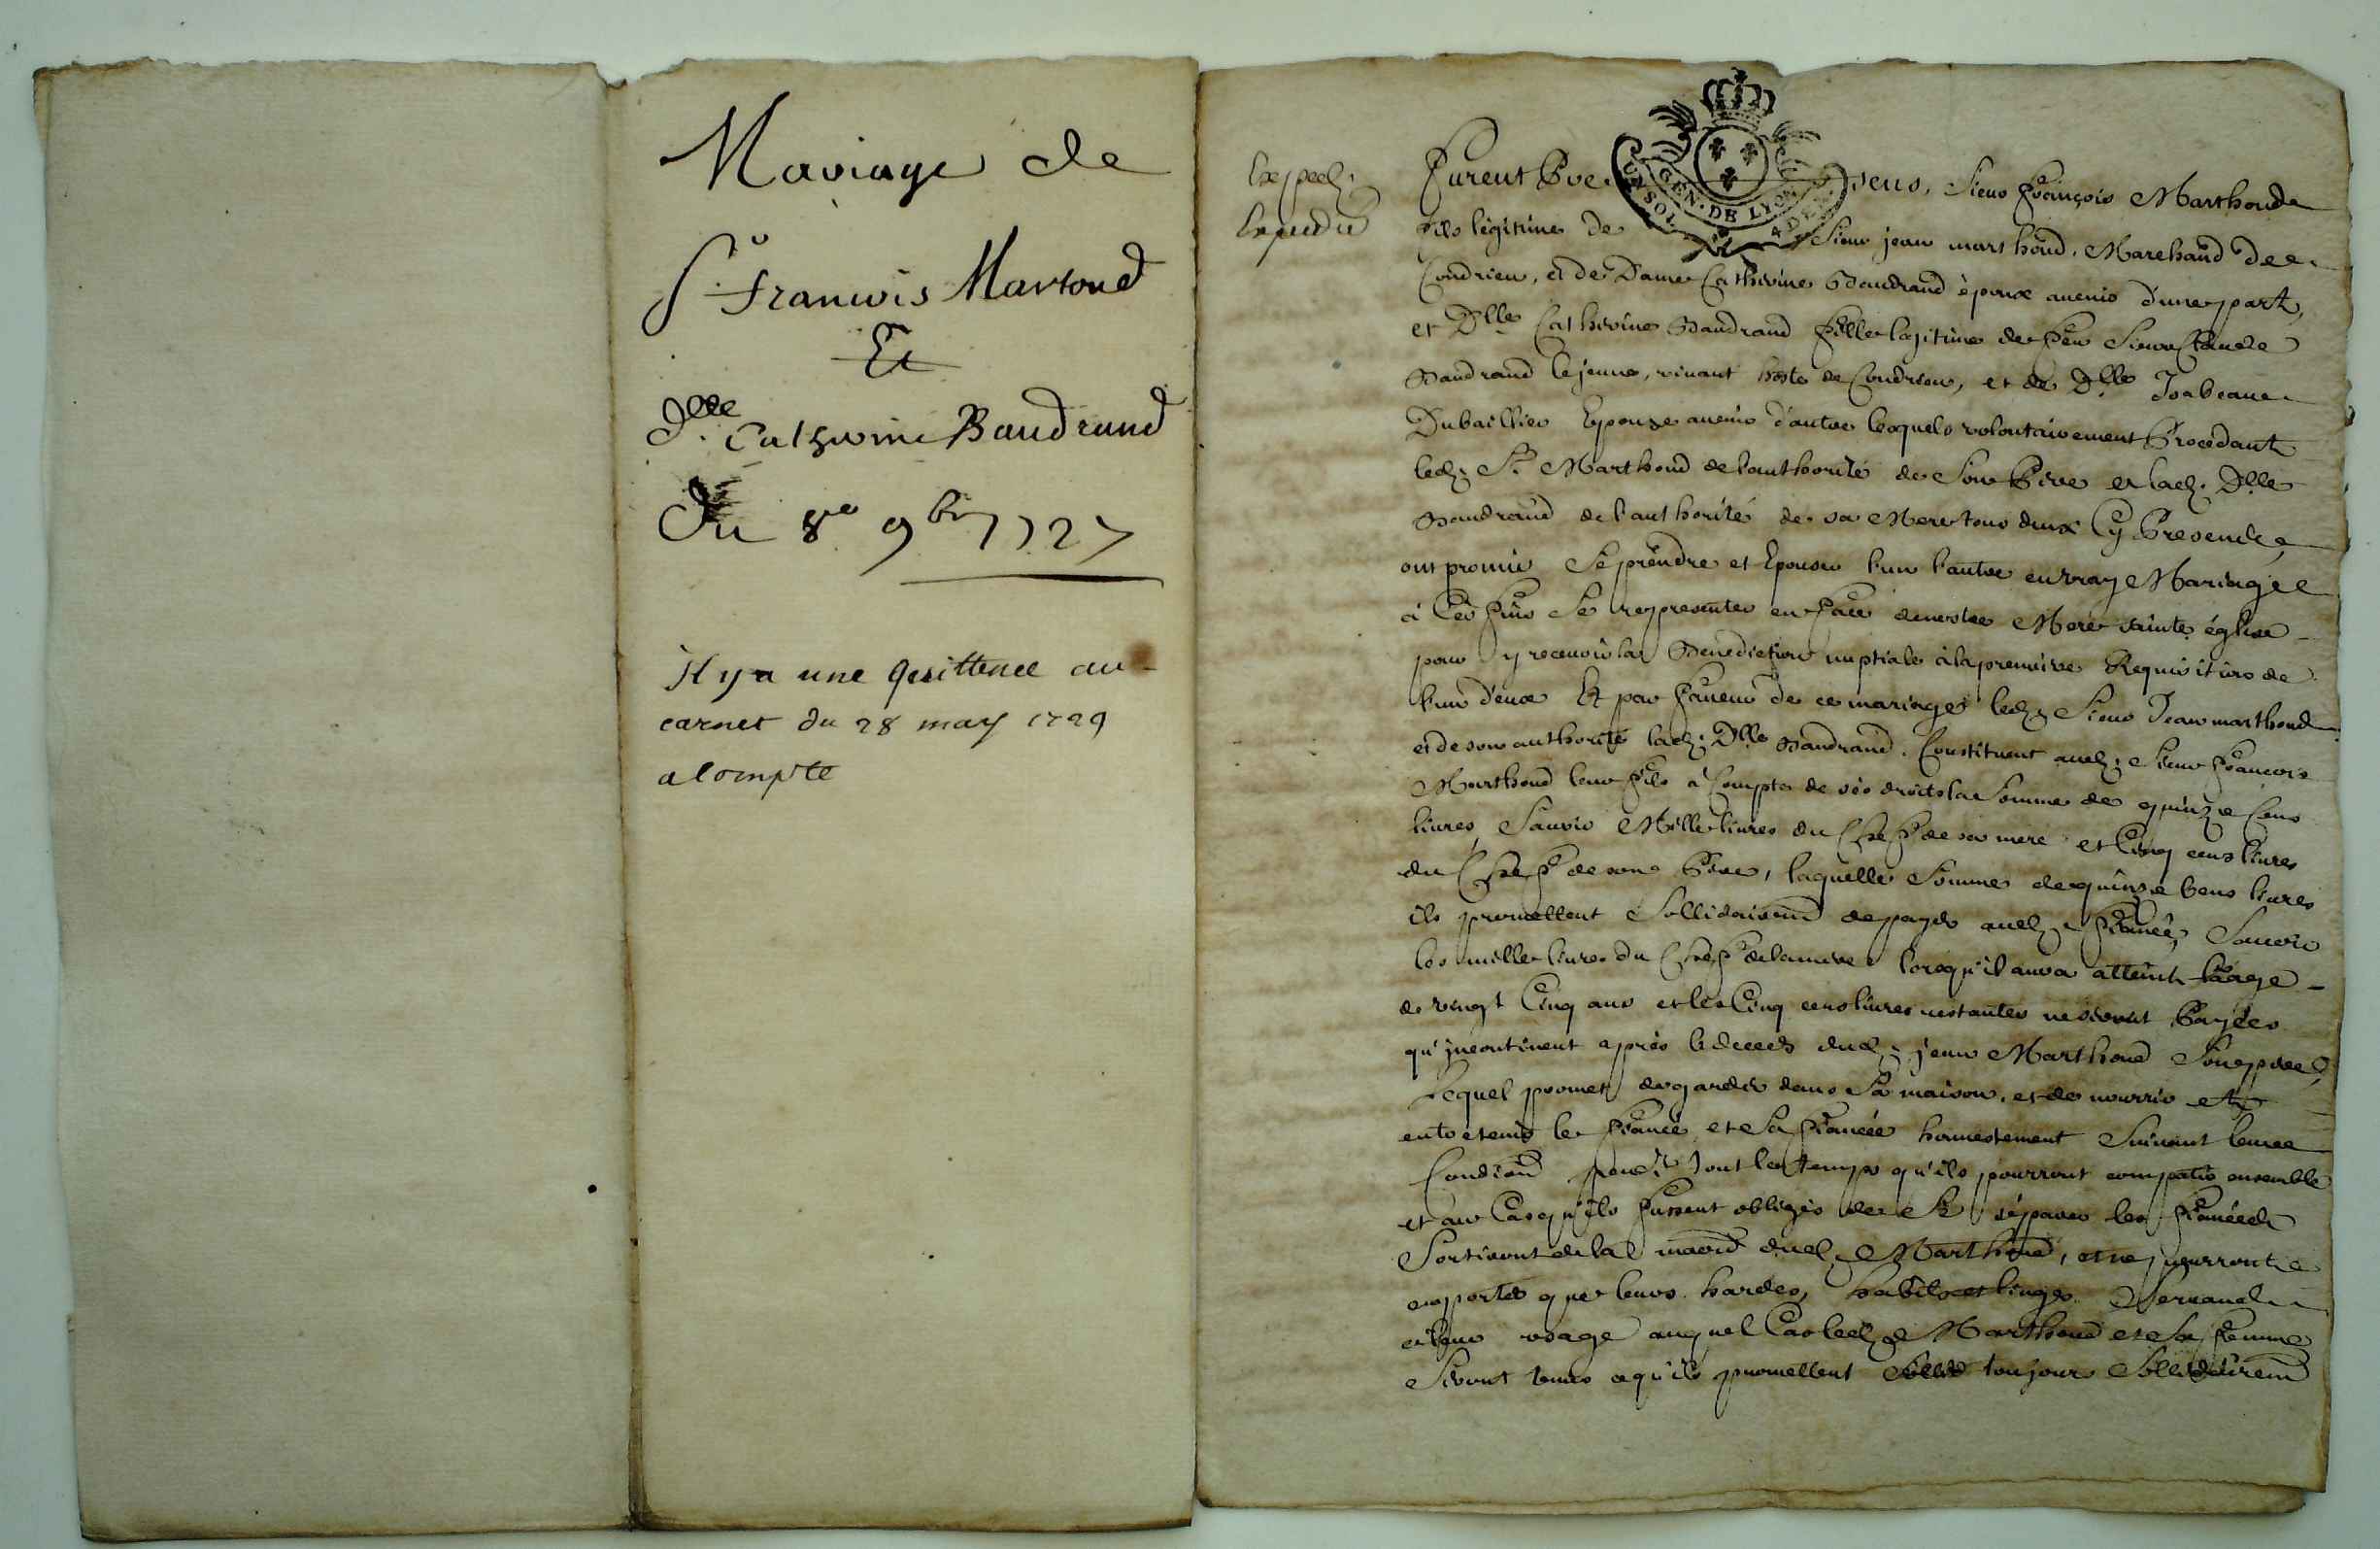 Mariage de
Sr francois Martoud
Et
Dlle Catherine Baudrand
Du 8e 9bre 1727
Il y a une quittence au
carnet du 28 may 1729
a Compte
Expedié
GEN. DE LYON
UN SOL 4 DEN.
Furent Pre sens, Sieur François Marthoud
fils légitime de Sieur jean marthoud, Marchand de
Condrieu, et de Dame Catherine Baudrand époux avenir d'une part,
et Dlle Catherine Baudrand fille legitime de feu Sieur Claude
Baudrand le jeune, vivant hoste de Condrieu, et de Dlle Isabeau
Dubaillier Epouse avenir d'autre lesquels volontairement Procedant
led. Sr Marthoud de l'authorité de Son Pere et lad. Dlle
Baudrand de l'authorité de sa Mere tous deux Cy Presents
ont promis Se prendre et Epouser l'un l'autre en vray Mariage
à Ces fins Se representer en face de nostre Mere sainte église
pour y recevoir la Benediction nuptiale à la premiere Requisition de
l'un d'eux Et par faveur de ce mariage led. Sieur Jean marthoud
et de son authorité lad. Dlle Baudrand Constituent aud. Sieur François
Marthoud leur fils à Compte de ses droits la Somme de quinze Cens
livres, Sauoir Mille livres du Chef de sa mere et Cinq cens livres
du Chef de son Pere, laquelle Somme de quinze Cens livres
ils promettent Sollidairemt de payer aud. fiancé, Sauoir
les mille livres du Chef de la mere lorsqu'il aura atteint l'aage
de vingt Cinq ans et les Cinq cens livres restantes ne seront Payées
qu'incontinent après le deceds dud. jean Marthoud Son pere
Lequel promet de garder dans Sa maison, et de nourrir et
entretenir le fiancé et la fiancée honnestement Suivant leur
Condion pendt tout le temps qu'ils pourront compatir ensemble
et au Cas qu'ils fussent obligés de Se séparer les fiancés
Sortiront de la maison dud. Marthoud, et ne pourront
emporter que leurs hardes, habits et linges Servant
à leur usage auquel Cas led. Marthoud et Sa femme
Seront tenus qu'ils promettent toujours Sollidairemt